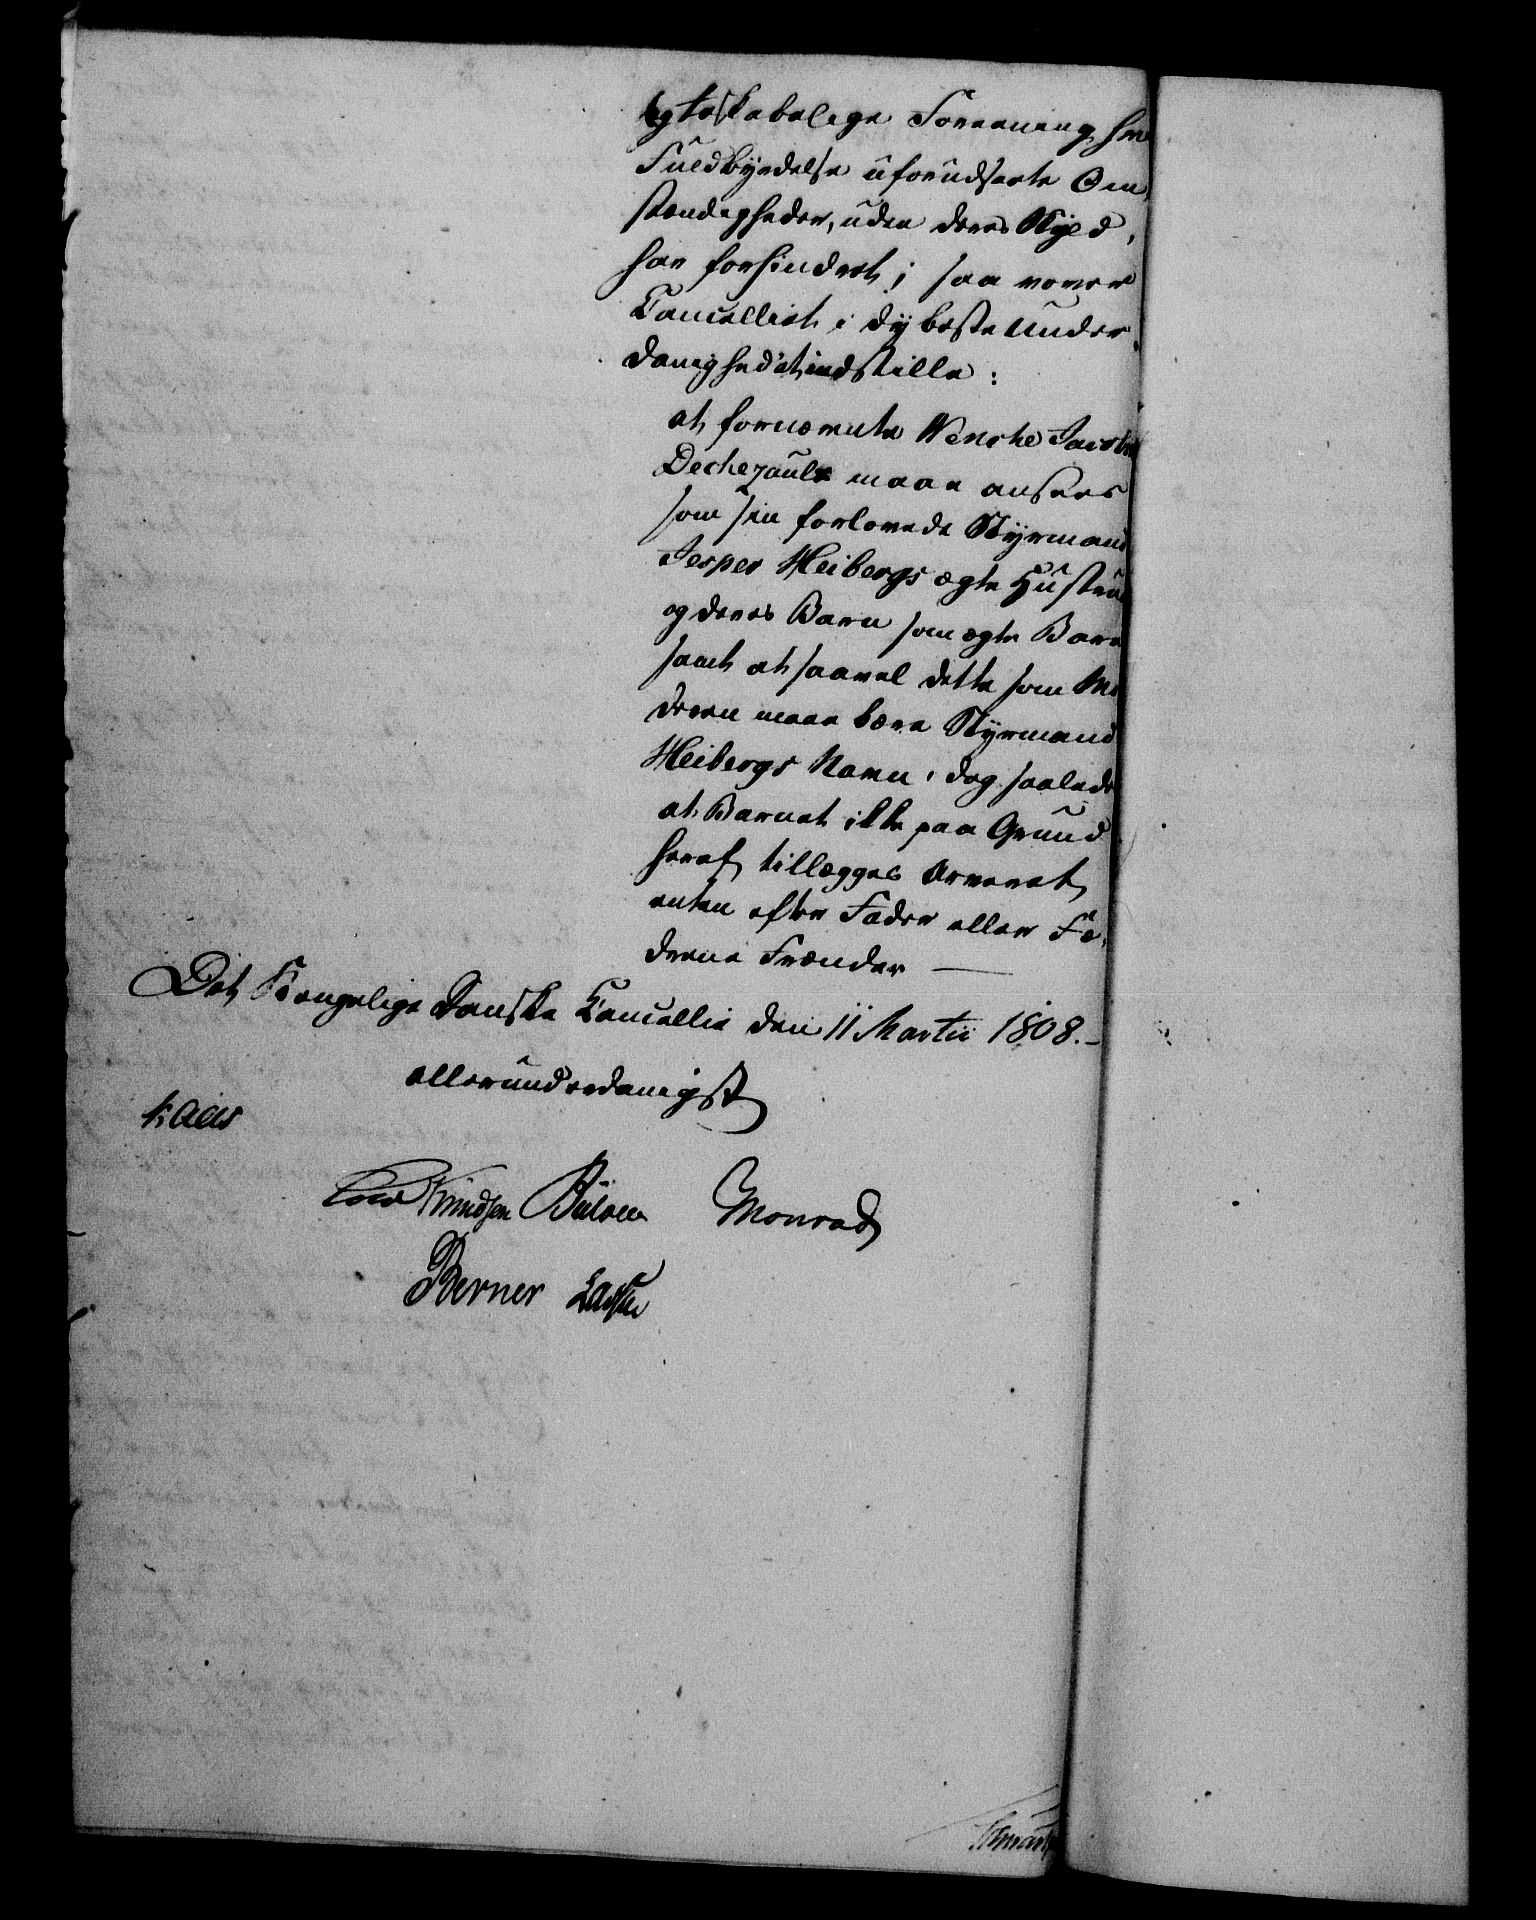 Egteskabelige Foreening hvis
Fuldbyrdelse uforudseete Om-
stændigheder, uden deres Skyld,
har forhindret; saa vover
Cancelliet i dybeste Under-
danighed at indstille:
at fornævnte Wenche Jacobine
Dechezaule maae ansees
som sin forlovede Styrmand
Jesper Heibergs ægte Hustrue
og deres Barn som ægte Barn
samt at saavel dette som Mo-
deren maae bære Styrmand
Heibergs Navn, dog saaledes
at Barnet ikke paa Grund
heraf tillægges Arveret
enten efter Fader eller Fæ-
drene Frænder
Det Kongelige Danske Cancellie den 11 Martii 1808.
allerunderdanigst
Kaas
Cold Knudsen Bülow Monrad
Berner Lassen